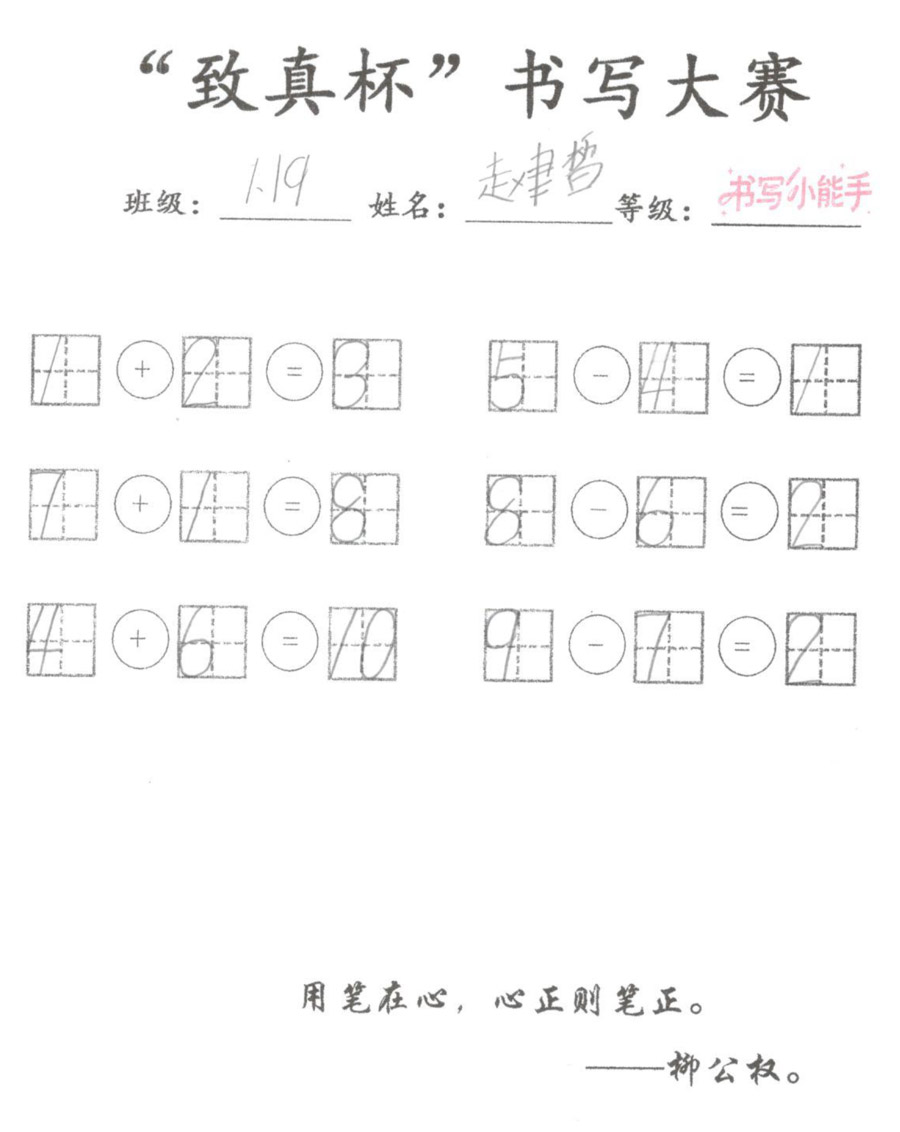 “致真杯”书写大赛
班级：1.19 姓名：赵聿哲 等级：书写小能手
1 + 2 = 3 5 - 4 = 1
7 + 1 = 8 8 - 6 = 2
4 + 6 = 10 9 - 7 = 2
用笔在心，心正则笔正。
——柳公权。